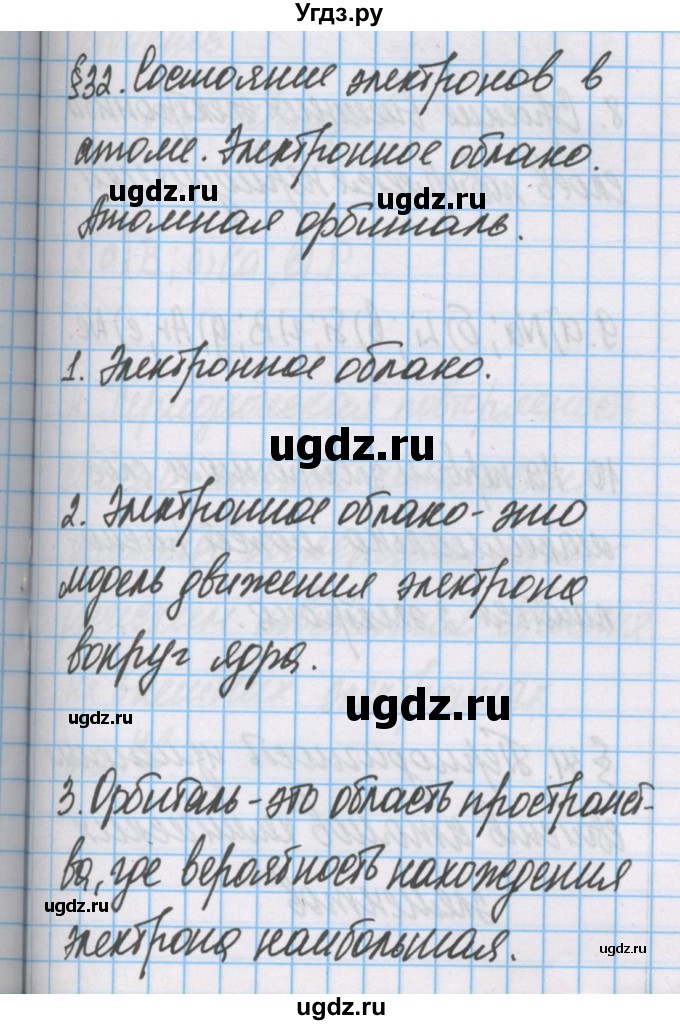 Угдз.ру
§32. Состояние электронов в
атоме. Электронное облако.
ugdz.ru ugdz.ru
Атомная орбиталь.
1. Электронное облако.
ugdz.ru
2. Электронное облако - это
модель движения электрона
вокруг ядра.
ugdz.ru
ugdz.ru
3. Орбиталь - это область пространст-
ва, где вероятность нахождения
ugdz.ru
электрона наибольшая.
ugdz.ru
ugdz.ru